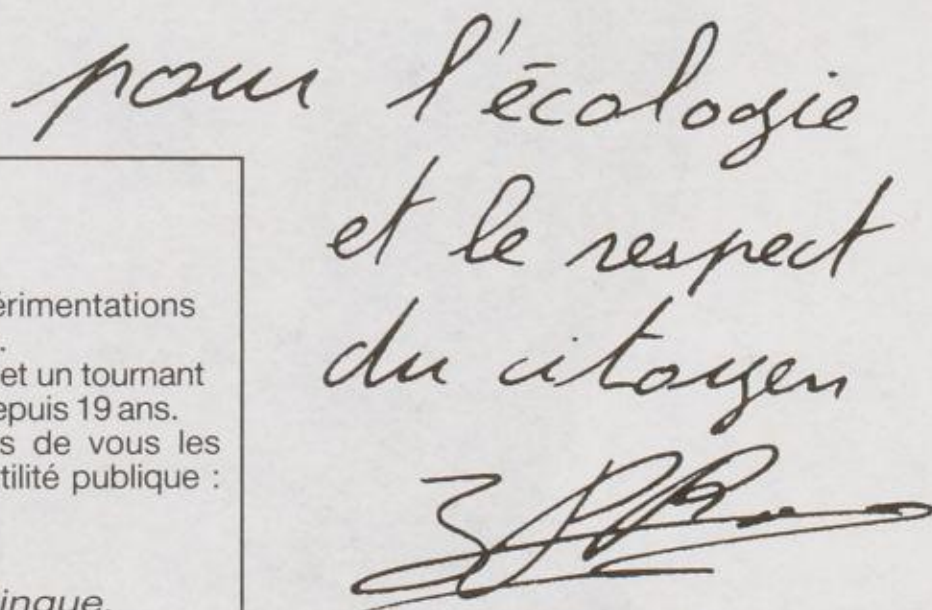 pour l'écologie
et le respect
du citoyen
érimentations
.
et un tournant
epuis 19 ans.
s de vous les
tilité publique :
ingue.